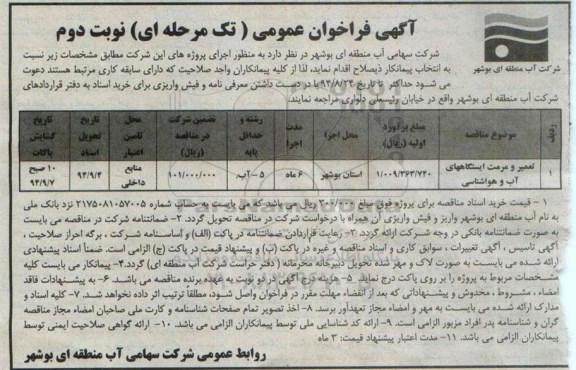 آگهی فراخوان عمومی ( تک مرحله ای) نوبت دوم
شرکت آب منطقه ای بوشهر
شرکت سهامی آب منطقه ای بوشهر در نظر دارد به منظور اجرای پروژه های این شرکت مطابق مشخصات زیر نسبت
به انتخاب پیمانکار ذیصلاح اقدام نماید، لذا از کلیه پیمانکاران واجد صلاحیت که دارای سابقه کاری مرتبط هستند دعوت
می شود حداکثر تا تاریخ ۹۴/۸/۲۳ با در دست داشتن معرفی نامه و فیش واریزی برای خرید اسناد به دفتر قراردادهای
شرکت آب منطقه ای بوشهر واقع در خیابان رئیسعلی دلواری مراجعه نمایند.
ردیف موضوع مناقصه مبلغ برآورد اولیه (ریال) محل اجرا مدت اجرا رشته و حداقل پایه تضمین شرکت در مناقصه (ریال) محل تامین اعتبار تاریخ تحویل اسناد تاریخ گشایش پاکات
۱ تعمیر و مرمت ایستگاههای آب و هواشناسی ۱/۰۰۹/۳۶۳/۷۴۰ استان بوشهر ۶ ماه ۵ - آب ۱۰۱/۰۰۰/۰۰۰ منابع داخلی ۹۴/۹/۴ ۱۰ صبح ۹۴/۹/۷
۱ - قیمت خرید اسناد مناقصه برای پروژه فوق مبلغ ۲۰۰/۰۰۰ ریال می باشد که می بایست به حساب شماره ۲۱۷۵۰۸۱۰۵۷۰۰۵ نزد بانک ملی
به نام آب منطقه ای بوشهر واریز و فیش واریزی آن همراه با درخواست شرکت در مناقصه تحویل گردد. ۲- ضمانتنامه شرکت در مناقصه می بایست
به صورت ضمانتنامه بانکی در وجه شرکت ارائه گردد ۳- رعایت قراردادن ضمانتنامه در پاکت (الف) و اساسنامه شرکت ، برگه احراز صلاحیت ،
آگهی تاسیس ، آگهی تغییرات ، سوابق کاری و اسناد مناقصه و غیره در پاکت (ب) و پیشنهاد قیمت در پاکت (ج) الزامی است. ضمناً اسناد پیشنهادی
ارائه شده می بایست به صورت لاک و مهر شده تحویل دبیرخانه محرمانه ( دفتر حراست شرکت آب منطقه ای) گردد. ۴- پیمانکار می بایست کلیه
مشخصات مربوط به پروژه را بر روی پاکت درج نماید. ۵- هزینه درج آگهی در دو نوبت به عهده برنده مناقصه می باشد. ۶- به پیشنهادات فاقد
امضاء ، مشروط ، مخدوش و پیشنهاداتی که بعد از انقضاء مهلت مقرر در فراخوان واصل شود، مطلقاً ترتیب اثر داده نخواهد شد. ۷- کلیه اسناد و
مدارک ارائه شده می بایست به مهر و امضاء مجاز تعهدآور برسد. ۸- اخذ تصویر تمام صفحات شناسنامه و کارت ملی صاحبان امضاء مجاز مناقصه
گران و شناسنامه پدر افراد مزبور الزامی است. ۹- ارائه کد شناسایی ملی توسط پیمانکاران الزامی می باشد. ۱۰- ارائه گواهی صلاحیت ایمنی توسط
پیمانکاران الزامی می باشد. ۱۱- مدت اعتبار پیشنهاد قیمت: ۳ ماه
روابط عمومی شرکت سهامی آب منطقه ای بوشهر